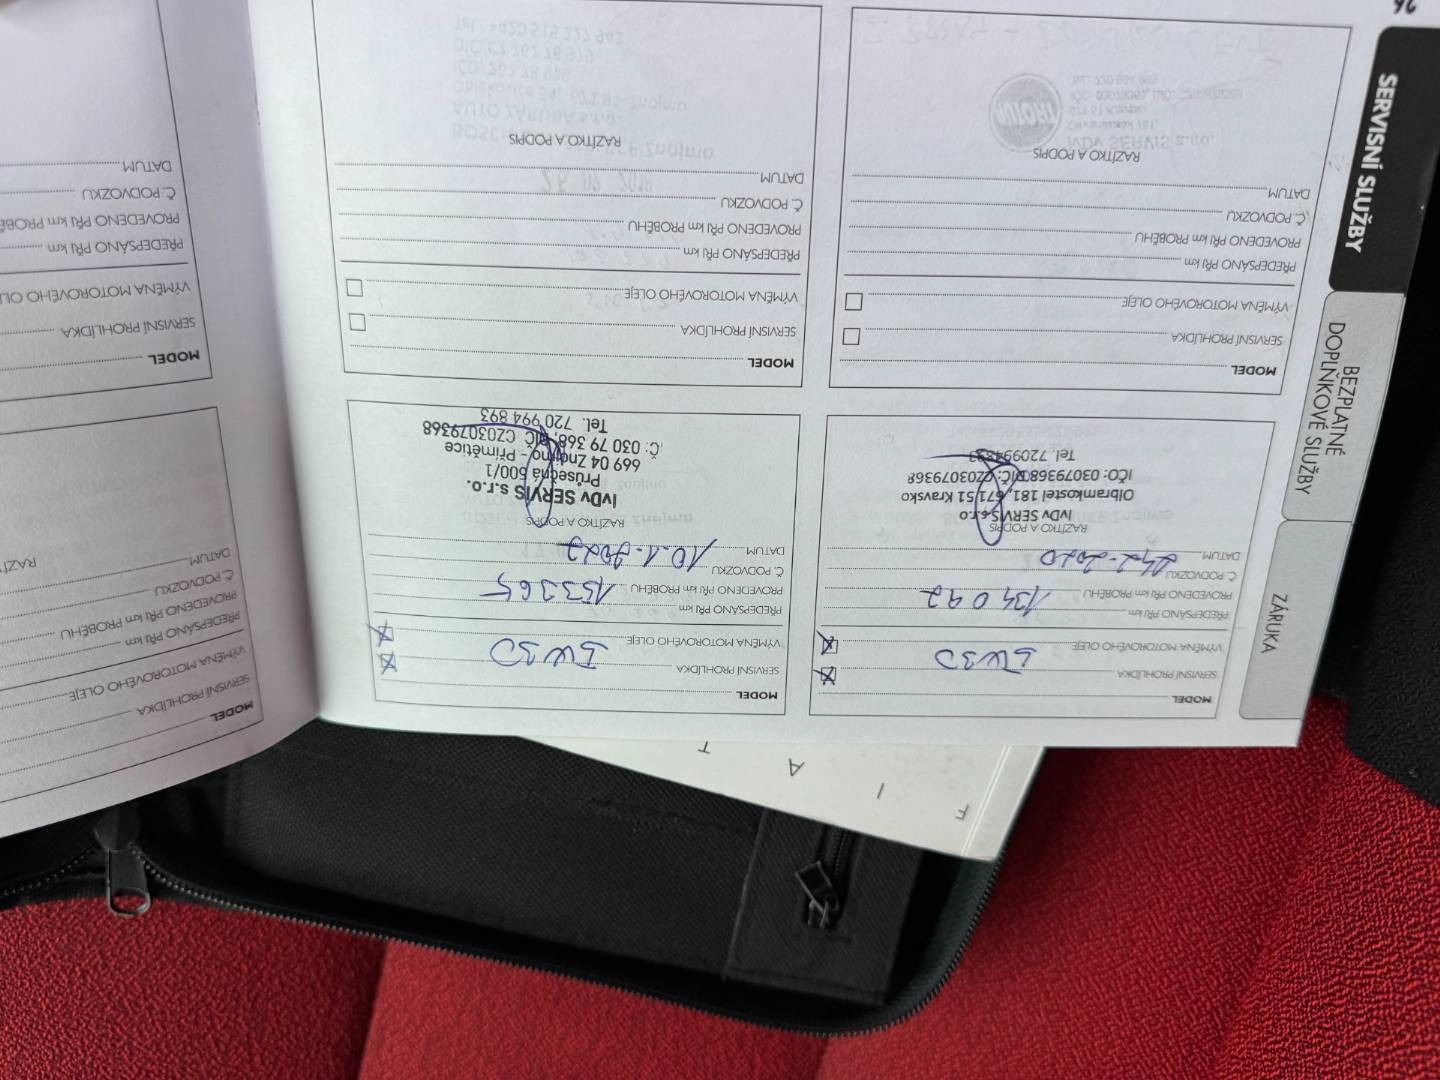 F I A T
ZÁRUKA
BEZPLATNÉ
DOPLŇKOVÉ SLUŽBY
SERVISNÍ SLUŽBY
26
MODEL
SERVISNÍ PROHLÍDKA
VÝMĚNA MOTOROVÉHO OLEJE 5W30
PŘEDEPSÁNO PŘI km
PROVEDENO PŘI km PROBĚHU 134 092
Č. PODVOZKU
DATUM 24.2-2020
RAZÍTKO A PODPIS
IVDv SERVIS s.r.o.
Olbramkostel 181, 671 51 Kravsko
IČO: 03079368 DIČ: CZ03079368
Tel 720994893
MODEL
SERVISNÍ PROHLÍDKA
VÝMĚNA MOTOROVÉHO OLEJE 5W30
PŘEDEPSÁNO PŘI km
PROVEDENO PŘI km PROBĚHU 153365
Č. PODVOZKU
DATUM
RAZÍTKO A PODPIS
IVDv SERVIS s.r.o.
Průsečná 500/1
669 04 Znojmo - Přímětice
Č: 030 79 368, DIČ CZ03079368
Tel. 720 994 893
MODEL
SERVISNÍ PROHLÍDKA
VÝMĚNA MOTOROVÉHO OLEJE
PŘEDEPSÁNO PŘI km
PROVEDENO PŘI km PROBĚHU
Č. PODVOZKU
DATUM
RAZÍTKO A PODPIS
MODEL
SERVISNÍ PROHLÍDKA
VÝMĚNA MOTOROVÉHO OLEJE
PŘEDEPSÁNO PŘI km
PROVEDENO PŘI km PROBĚHU
Č. PODVOZKU
DATUM
RAZÍTKO A PODPIS
MODEL
SERVISNÍ PROHLÍDKA
VÝMĚNA MOTOROVÉHO OLEJE
PŘEDEPSÁNO PŘI km
PROVEDENO PŘI km PROBĚHU
Č. PODVOZKU
DATUM
RAZÍ
MODEL
SERVISNÍ PROHLÍDKA
VÝMĚNA MOTOROVÉHO OLE
PŘEDEPSÁNO PŘI km
PROVEDENO PŘI km PROBĚ
Č. PODVOZKU
DATUM